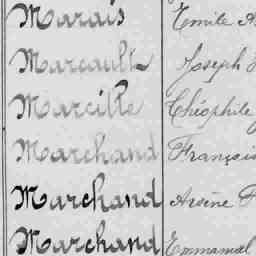 Marais Emile A
Marcault Joseph
Marcille Théophile
Marchand François
Marchand Arsène
Marchand Emmanuel